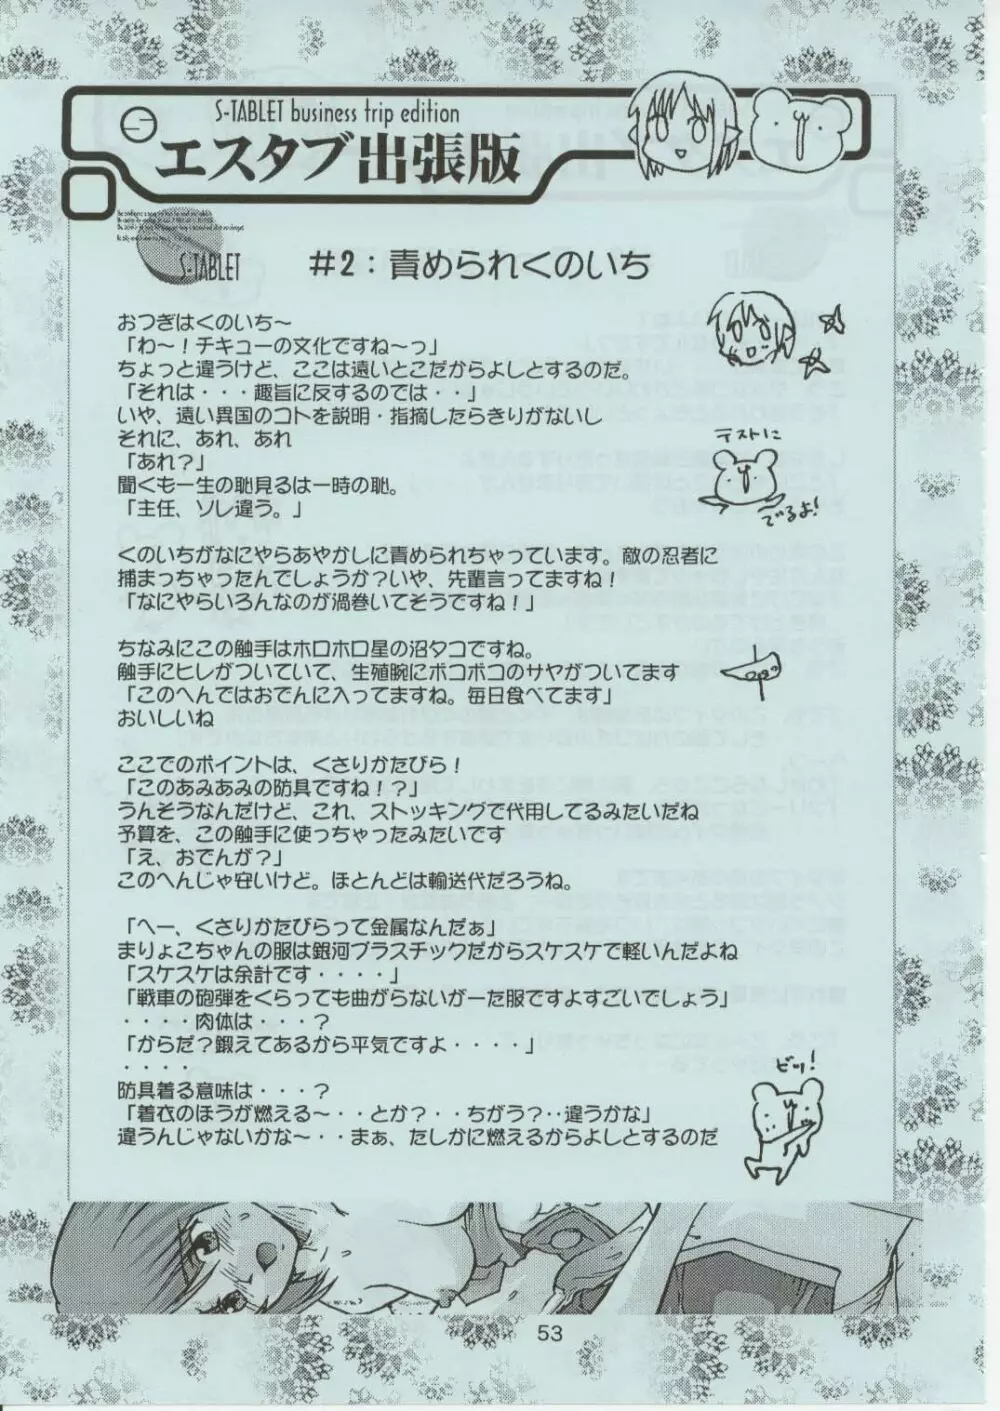 S-TABLET business trip edition
エスタブ出張版
S-TABLET
#2：責められくのいち
おつぎはくのいち～
「わ～！チキューの文化ですね～っ」
ちょっと違うけど、ここは遠いとこだからよしとするのだ。
「それは・・・趣旨に反するのでは・・」
いや、遠い異国のコトを説明・指摘したらきりがないし
それに、あれ、あれ
「あれ？」
聞くも一生の恥見るは一時の恥。
「主任、ソレ違う。」
テストに
でるよ！
くのいちがなにやらあやかしに責められちゃっています。敵の忍者に
捕まっちゃったんでしょうか？いや、先輩言ってますね！
「なにやらいろんなのが渦巻いてそうですね！」
ちなみにこの触手はホロホロ星の沼タコですね。
触手にヒレがついていて、生殖腕にボコボコのサヤがついてます
「このへんではおでんに入ってますね。毎日食べてます」
おいしいね
ここでのポイントは、くさりかたびら！
「このあみあみの防具ですね！？」
うんそうなんだけど、これ、ストッキングで代用してるみたいだね
予算を、この触手に使っちゃったみたいです
「え、おでんが？」
このへんじゃ安いけど。ほとんどは輸送代だろうね。
「へー、くさりかたびらって金属なんだぁ」
まりょこちゃんの服は銀河プラスチックだからスケスケで軽いんだよね
「スケスケは余計です・・・・」
「戦車の砲弾をくらっても曲がらないがーた服ですよすごいでしょう」
・・・・肉体は・・・？
「からだ？鍛えてあるから平気ですよ・・・・」
・・・・
防具着る意味は・・・？
「着衣のほうが燃える～・・とか？・・ちがう？・・違うかな」
違うんじゃないかな～・・まぁ、たしかに燃えるからよしとするのだ
ビッ！
53